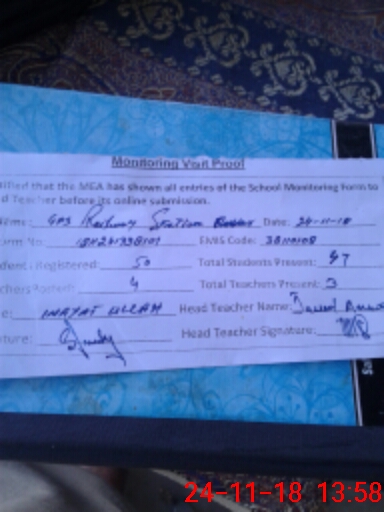 Monitoring Visit Proof
tified that the MEA has shown all entries of the School Monitoring Form to
d Teacher before its online submission.
Name: GPS Railway Station Date: 24-11-18
orm No: EMIS Code:
dent Registered: 50 Total Students Present: 47
chers Posted: 4 Total Teachers Present: 3
e: INAYAT ULLAH Head Teacher Name:
ture: Head Teacher Signature:
24-11-18 13:58